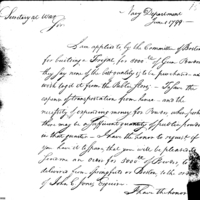 Secretary at War
Navy Department
June 1799
Sir
I am applied to by the Committee of Boston
for building a Frigate for 5000 lb of Gun Powder
they say none of the best quality is to be purchased and
wish to get it from the Public Store. To save the
expense of transportation from hence and the
necessity of
there may be a sufficient quantity of public powder
in that quarter I have the honor to request if
you have it to spare, that you will be pleased to
favour me an order for 5000 lb of Powder, to be
delivered from Springfield or Boston, to the order
of John C Jones Esquire
I have the honor